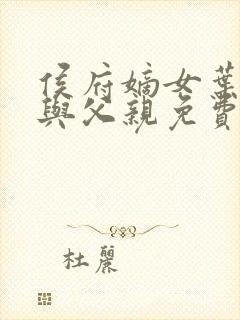 侯府嫡女葉
與父親免費
杜麗